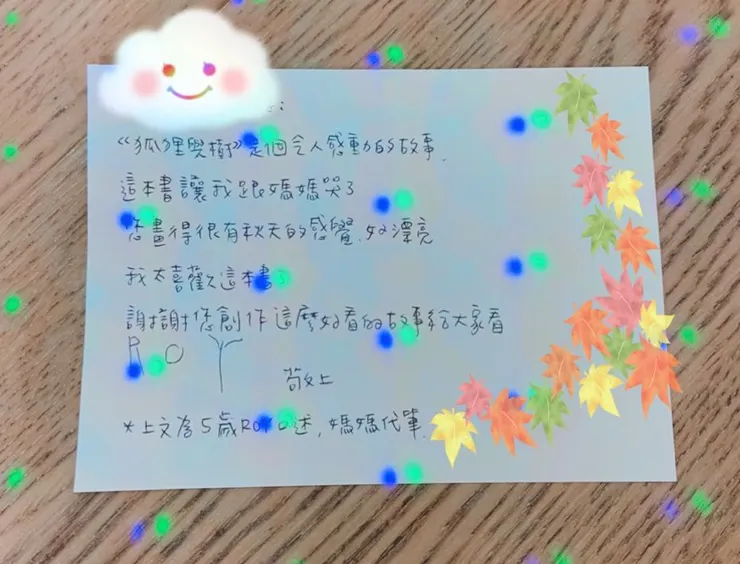 《狐狸與樹》是個令人感動的故事.
這本書讓我跟媽媽哭了
您畫得很有秋天的感覺.好漂亮
我太喜歡這本書了
謝謝您創作這麼好看的故事給大家看
ROY
敬上
*上文為5歲ROY口述,媽媽代筆.